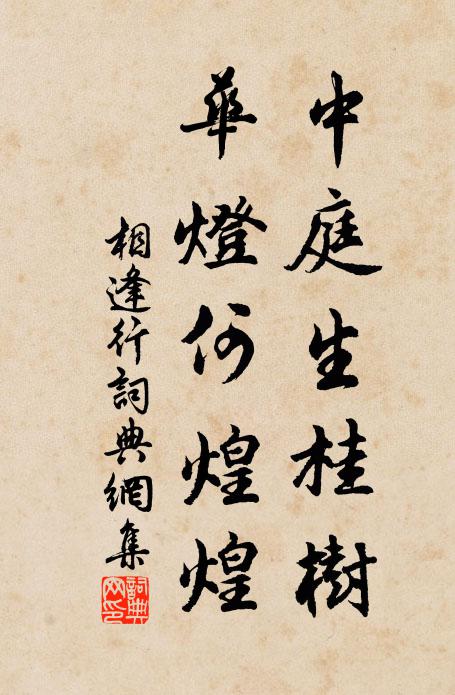 中庭生桂樹
華燈何煌煌
相逢行詞典網集
詞典網印